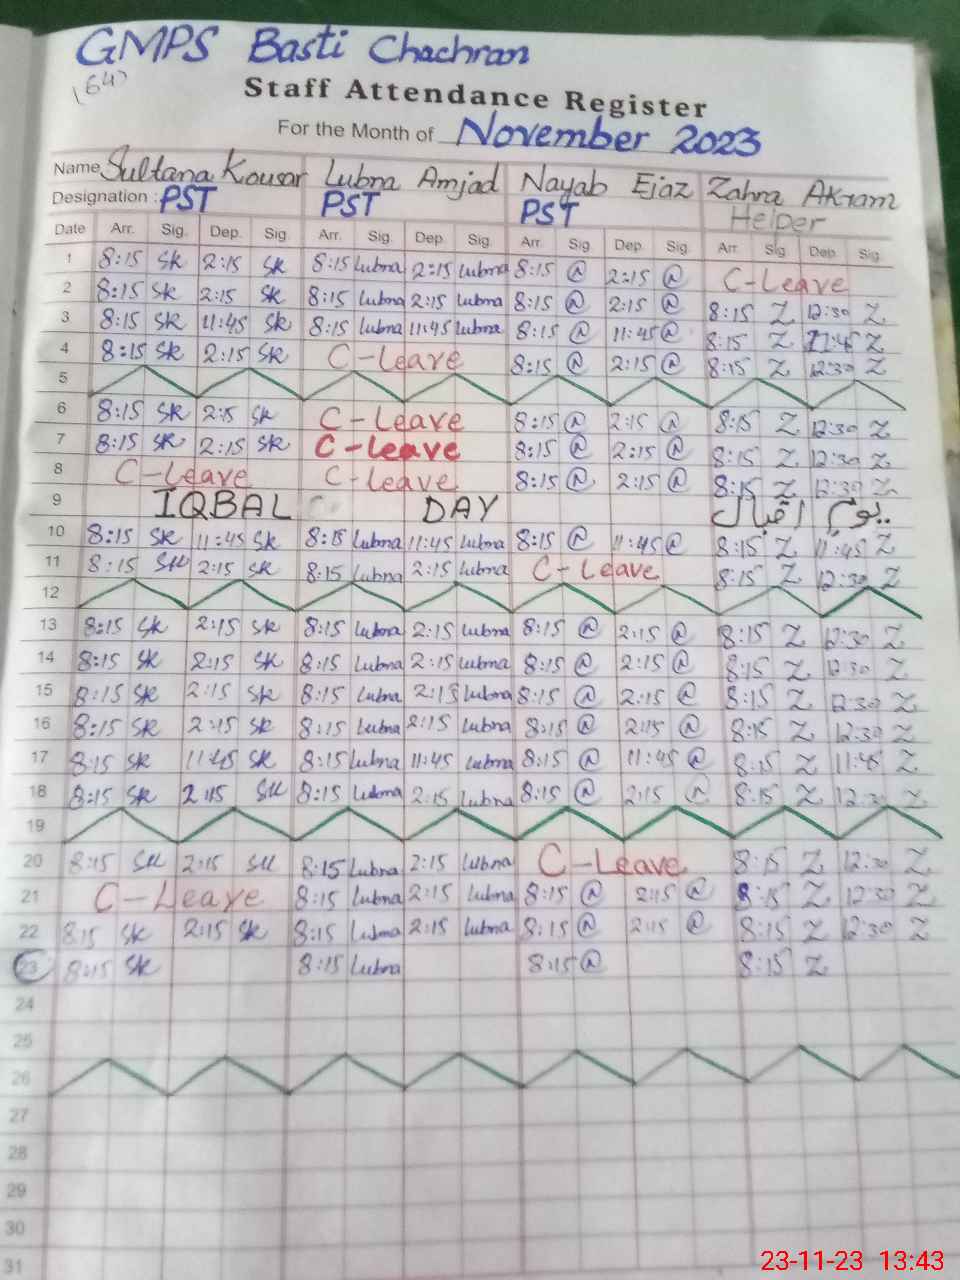 GMPS Basti Chachran
(64)
Staff Attendance Register
For the Month of November 2023
Name Sultana Kousar Lubna Amjad Nayab Ejaz Zahra Akram
Designation : PST PST PST Helper
Date Arr. Sig. Dep. Sig. Arr. Sig. Dep. Sig. Arr. Sig. Dep. Sig. Arr. Sig. Dep. Sig.
1 8:15 SK 2:15 SK 8:15 Lubna 2:15 Lubna 8:15 @ 2:15 @ C-Leave
2 8:15 SK 2:15 SK 8:15 Lubna 2:15 Lubna 8:15 @ 2:15 @ 8:15 Z 12:30 Z
3 8:15 SK 11:45 SK 8:15 Lubna 11:45 Lubna 8:15 @ 11:45 @ 8:15 Z 11:45 Z
4 8:15 SK 2:15 SK C-Leave 8:15 @ 2:15 @ 8:15 Z 12:30 Z
5
6 8:15 SK 2:15 SK C-Leave 8:15 @ 2:15 @ 8:15 Z 12:30 Z
7 8:15 SK 2:15 SK C-Leave 8:15 @ 2:15 @ 8:15 Z 12:30 Z
8 C-Leave C-Leave 8:15 @ 2:15 @ 8:15 Z 12:30 Z
9 IQBAL DAY یوم اقبال
10 8:15 SK 11:45 SK 8:15 Lubna 11:45 Lubna 8:15 @ 11:45 @ 8:15 Z 11:45 Z
11 8:15 SK 2:15 SK 8:15 Lubna 2:15 Lubna C-Leave 8:15 Z 12:30 Z
12
13 8:15 SK 2:15 SK 8:15 Lubna 2:15 Lubna 8:15 @ 2:15 @ 8:15 Z 12:30 Z
14 8:15 SK 2:15 SK 8:15 Lubna 2:15 Lubna 8:15 @ 2:15 @ 8:15 Z 12:30 Z
15 8:15 SK 2:15 SK 8:15 Lubna 2:15 Lubna 8:15 @ 2:15 @ 8:15 Z 12:30 Z
16 8:15 SK 2:15 SK 8:15 Lubna 2:15 Lubna 8:15 @ 2:15 @ 8:15 Z 12:30 Z
17 8:15 SK 11:45 SK 8:15 Lubna 11:45 Lubna 8:15 @ 11:45 @ 8:15 Z 11:45 Z
18 8:15 SK 2:15 SK 8:15 Lubna 2:15 Lubna 8:15 @ 2:15 @ 8:15 Z 12:30 Z
19
20 8:15 SK 2:15 SK 8:15 Lubna 2:15 Lubna C-Leave 8:15 Z 12:30 Z
21 C-Leave 8:15 Lubna 2:15 Lubna 8:15 @ 2:15 @ 8:15 Z 12:30 Z
22 8:15 SK 2:15 SK 8:15 Lubna 2:15 Lubna 8:15 @ 2:15 @ 8:15 Z 12:30 Z
23 8:15 SK 8:15 Lubna 8:15 @ 8:15 Z
24
25
26
27
28
29
30
31
23-11-23 13:43